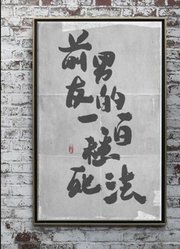 前男
友的
一百
種
死法